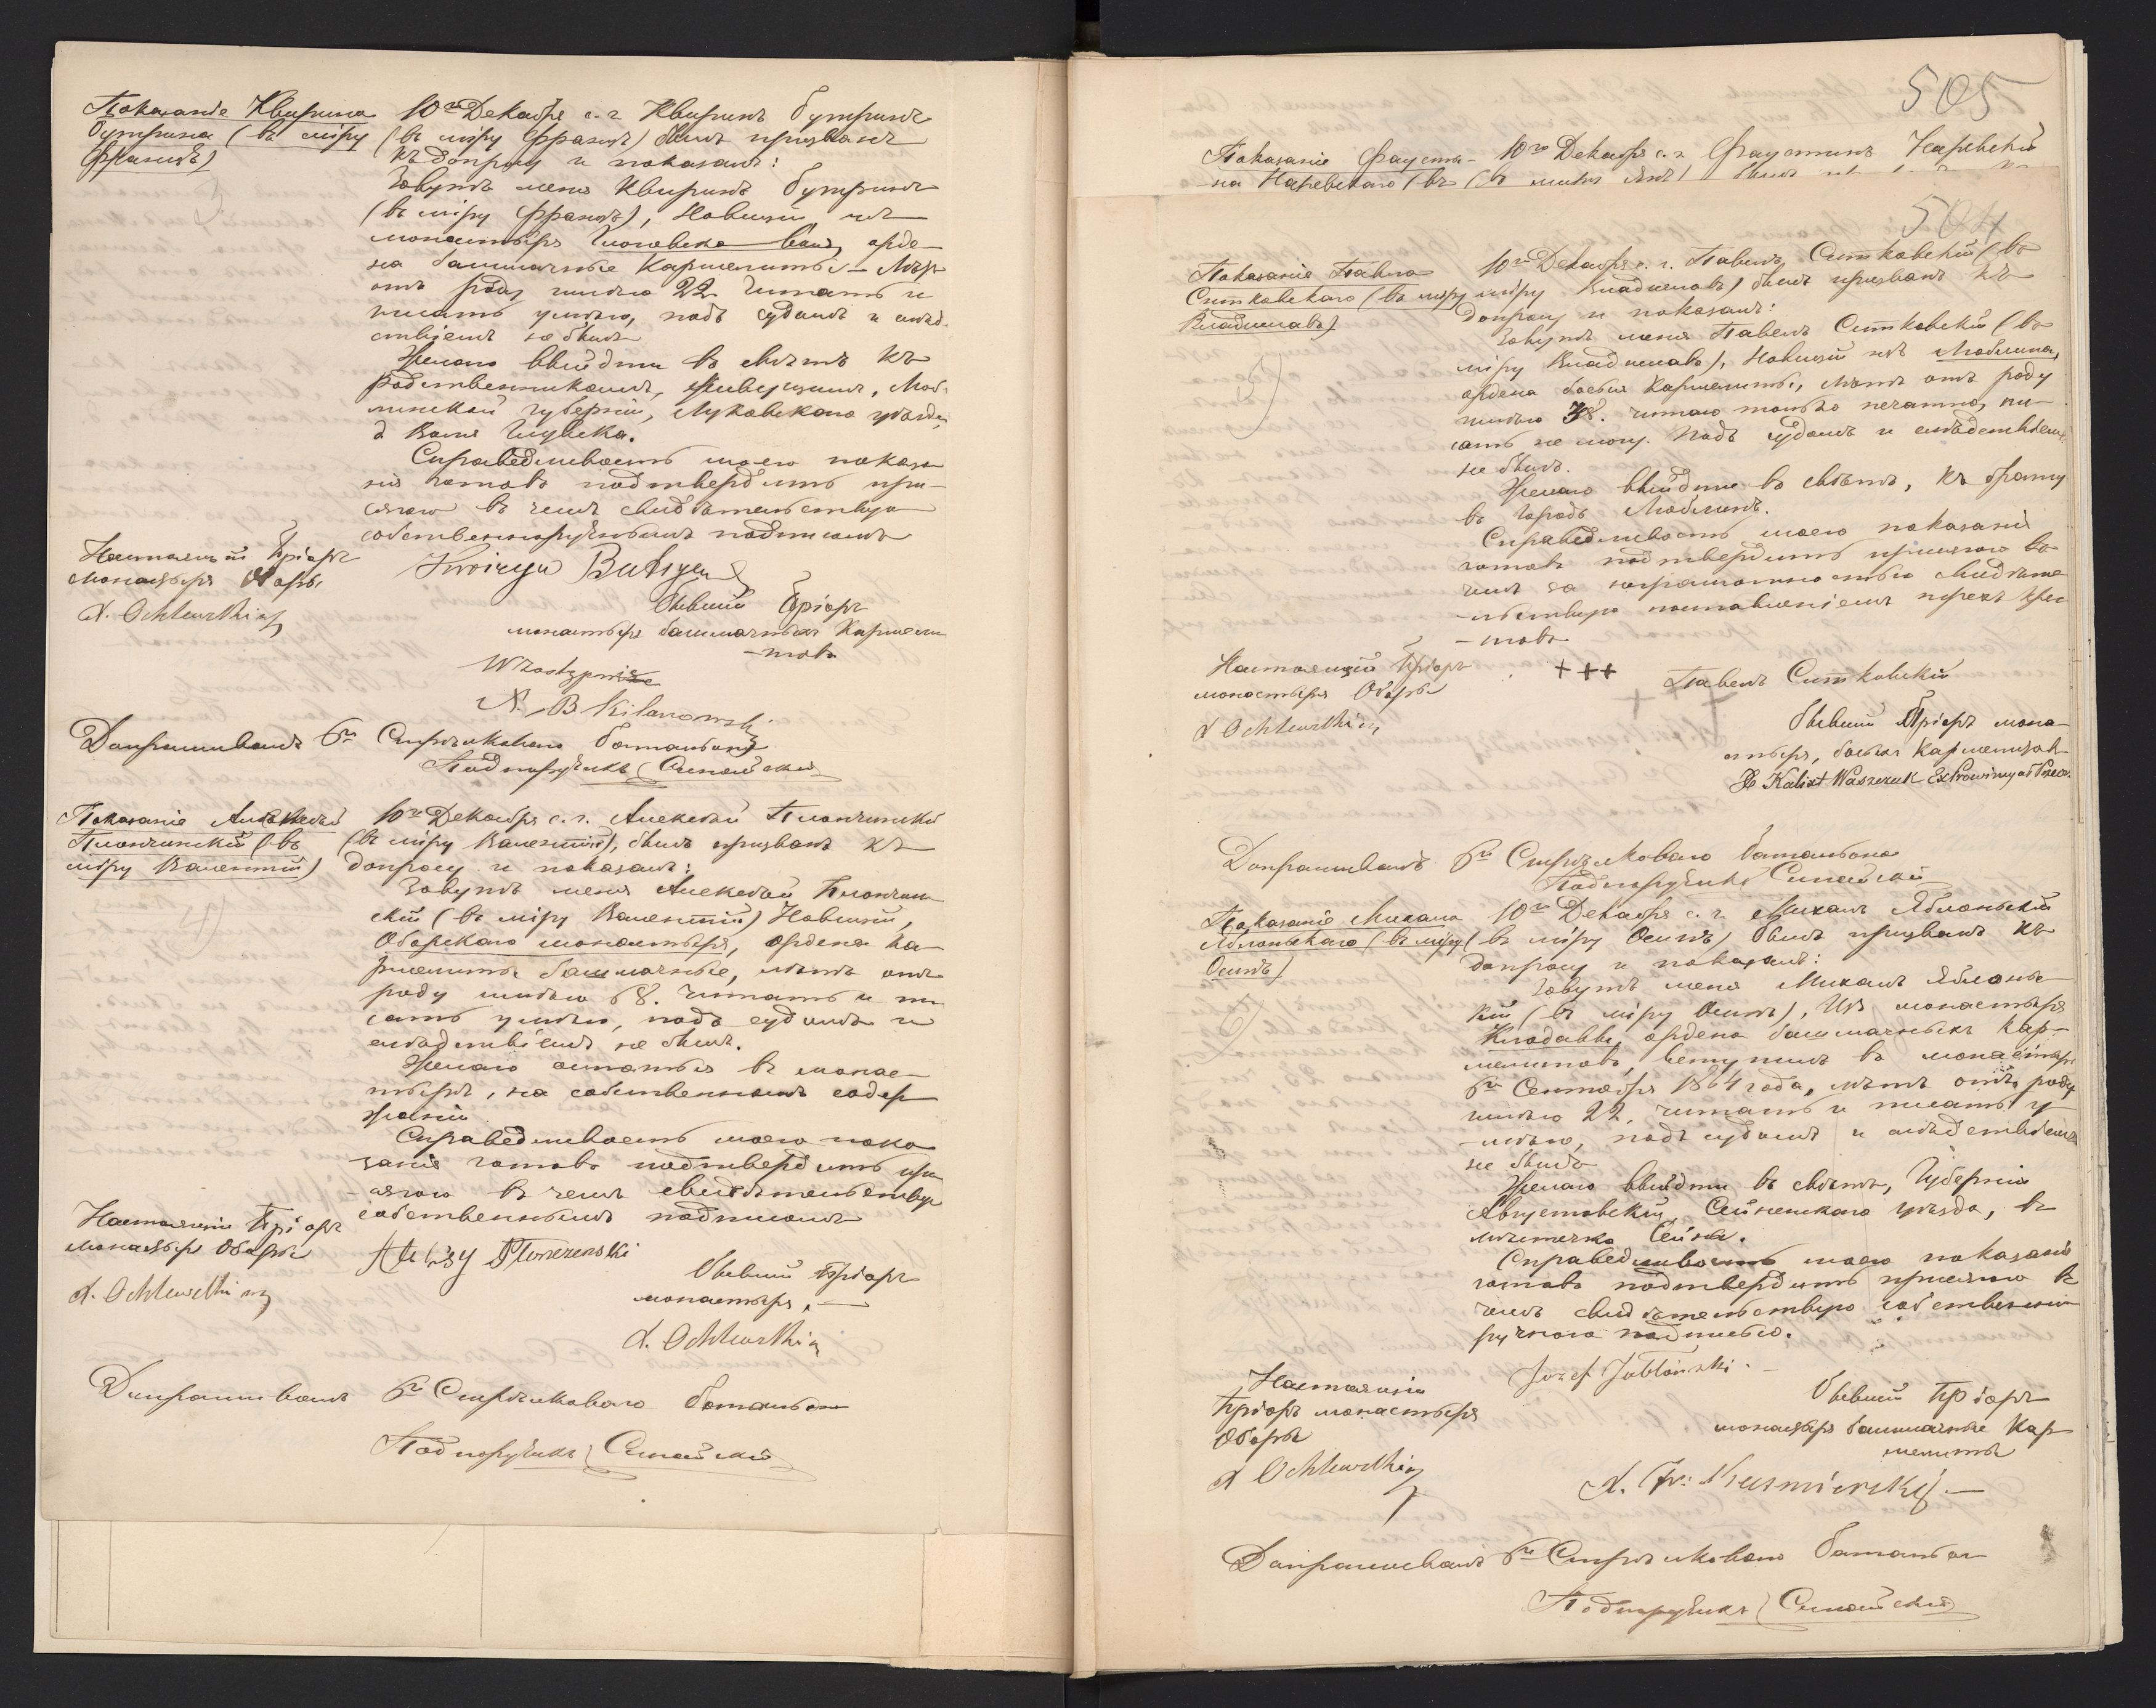 Показаніе Квирина
Бутрина (въ міру
Францъ)
10го Декабря с. г. Квиринъ Бутринъ
(въ міру Францъ) былъ призванъ
къ допросу и показалъ:
Зовутъ меня Квиринъ Бутринъ
(въ міру Францъ), Новицій изъ
монастыря Воля, орде-
на башмачные Кармелиты – Лѣтъ
отъ роду имѣю 22. Читать и
писать умѣю, подъ судомъ и слѣд-
ствіемъ не былъ
Желаю выйдти въ свѣтъ къ
родственникамъ, живущимъ, Люб-
линской губерніи, Луковскаго уѣзда,
д. Воля Гулувска.
Справедливость моего показа
нія готовъ подтвердить при-
сягою въ чемъ свидѣтельствую
собственноручнымъ подписомъ
Настоящій Пріоръ
монастыря Оборы
X. Ochlewski
Бывшій Пріоръ
монастыря башмачныхъ Кармели
-товъ
W Zastępnie
X. B Kilanowski
Допрашивалъ 6го Стрѣлковаго баталіона
Подпоручикъ
Показаніе Алексѣй
Плончинскій (въ
міру Валентій)
10го Декабря с. г. Алексѣй Плончинскій
(въ міру Валентій), былъ призванъ къ
допросу и показалъ:
Зовутъ меня Алексѣй Плончин
скій (въ міру Валентій) Новицій,
Оборскаго монастыря, ордена Ка-
рмелиты башмачные, лѣтъ отъ
роду имѣю 68. Читать и пи
сать умѣю, подъ судомъ и
слѣдствіемъ не былъ.
Желаю остаться въ монас-
тырѣ, на собственномъ содер
жаніи
Справедливость моего пока
занія готовъ подтвердить при
-сягою въ чемъ свидѣтельствую
собственнымъ подписомъ
Настоящій Пріоръ
монастыря Оборы
X. Ochlewski
Alexy Plonczenski
Бывшій Пріоръ
монастыря, —
X. Ochlewski
Допрашивалъ 6го Стрѣлковаго баталіона
Подпоручикъ
505
Показаніе Фаусти- 10го Декабря с. г. Фаустинъ Наревскій
-на Наревскаго (въ (въ міру былъ
504
Показаніе Павла
Ситковскаго (въ міру
Владиславъ)
10го Декабря с. г. Павелъ Ситковскій (въ
міру Владиславъ) былъ призванъ къ
допросу и показалъ:
Зовутъ меня Павелъ Ситковскій (въ
міру Владиславъ), Новицій изъ Люблина,
ордена босыя Кармелиты, лѣтъ отъ роду
имѣю 38. читаю только печатно, пи-
сать не могу. Подъ судомъ и слѣдствіемъ
не былъ.
Желаю выйдти въ свѣтъ, къ брату
въ городъ Люблинъ.
Справедливость моего показанія
готовъ подтвердить присягою въ
чемъ за неграмотностью свидѣте
-льствую поставленіемъ трехъ крес
-товъ
Настоящій Пріоръ
монастыря Оборы
X Ochlewski
+++ Павелъ Ситковскій
бывшій Пріоръ мона-
стыря, босыхъ Кармелитовъ
X Kalixt Waszczuk
Допрашивалъ 6го Стрѣлковаго баталіона
Подпоручикъ
Показаніе Михала
Яблоньскаго (въ міру
Осипъ)
10го Декабря с. г. Михалъ Яблоньскій
(въ міру Осипъ) былъ призванъ къ
допросу и показалъ:
Зовутъ меня Михалъ Яблонь
кій (въ міру Осипъ), Изъ монастыря
Клодавы, ордена башмачныхъ Кар-
мелитовъ, вступилъ въ монастырь
6го Сентября 1864 года, лѣтъ отъ роду
имѣю 22, читать и писать у
-мѣю, подъ судомъ и слѣдствіемъ
не былъ
Желаю выйдти въ свѣтъ, Губерніи
Августовскій, Сейненскаго уѣзда, въ
мѣстечко Сейны.
Справедливость моего показанія
готовъ подтвердить присягою въ
чемъ свидѣтельствую собственно
ручною подписью.
Настоящій
Пріоръ монастыря
Оборы
X Ochlewski
Jozef Jabłoński.
Бывшій Пріоръ
монастыря башмачные Кар
мелиты
Допрашивалъ 6го Стрѣлковаго баталіона
Подпоручикъ